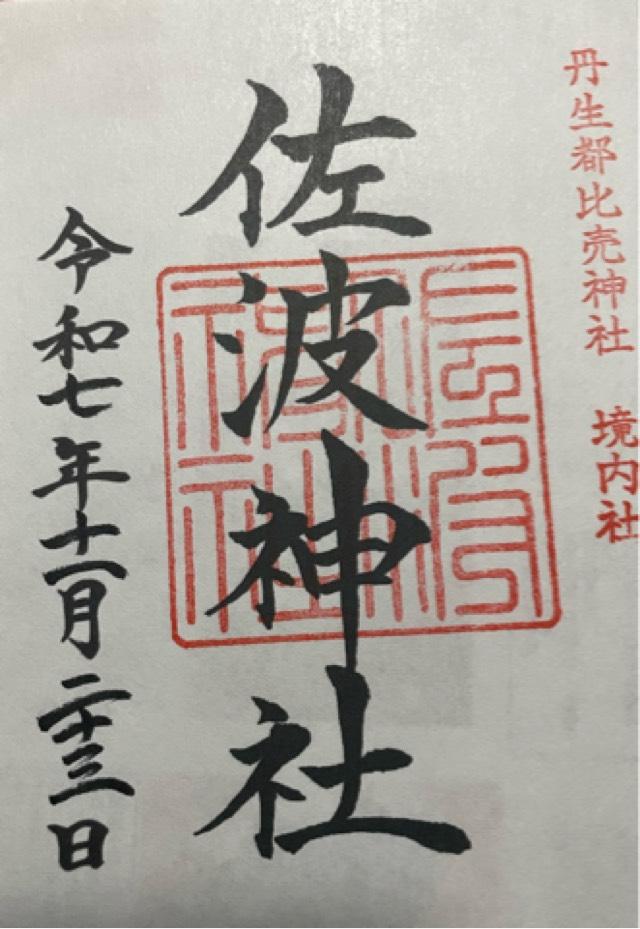 丹生都比売神社 境内社
佐波神社
令和七年十一月二十三日